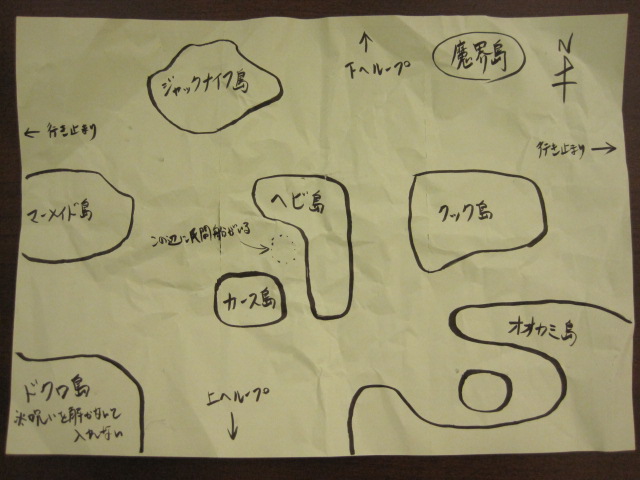 ↑
下へループ
魔界島
N
ジャックナイフ島
← 行き止まり
行き止まり →
マーメイド島
ヘビ島
クック島
この辺に民間船がいる
カース島
オオカミ島
ドクロ島
※呪いを解かないと
入れない
上へループ
↓